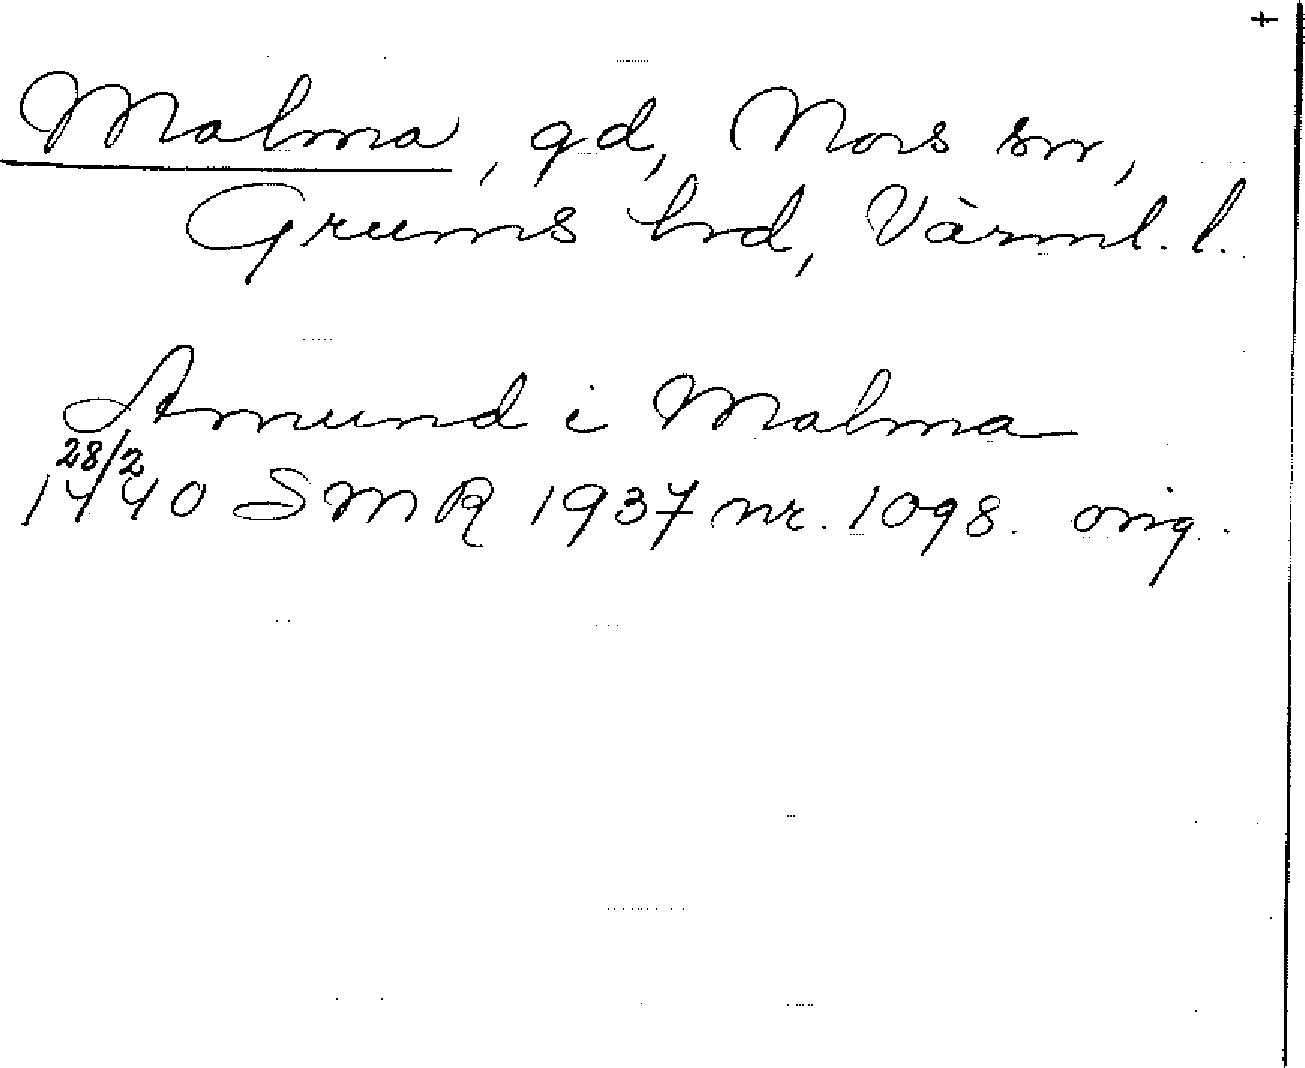 +
Malma, gd, Nors sn,
Grums hd, Värml. l.
Amund i Malma
28/2
1440 SMR 1937 nr. 1098. orig.